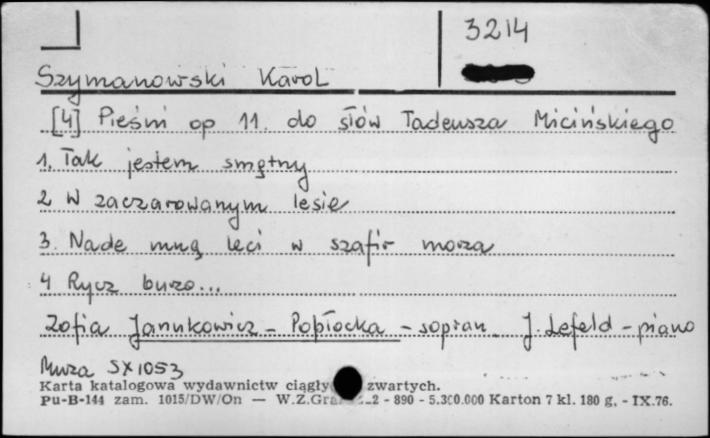 3214
Szymanowski Karol
[4] Pieśni op 11. do słów Tadeusza Micińskiego
1. Tak jestem smętny
2 W zaczarowanym lesie
3. Nade mną leci w szafir morza
4 Rycz burzo...
Zofia Janukowicz - Pobłocka - sopran J. Lefeld - piano
Muza SX1053
Karta katalogowa wydawnictw ciągły zwartych.
Pu-B-144 zam. 1015/DW/On — W.Z.Gra 2 - 890 - 5.300.000 Karton 7 kl. 180 g. - IX.76.